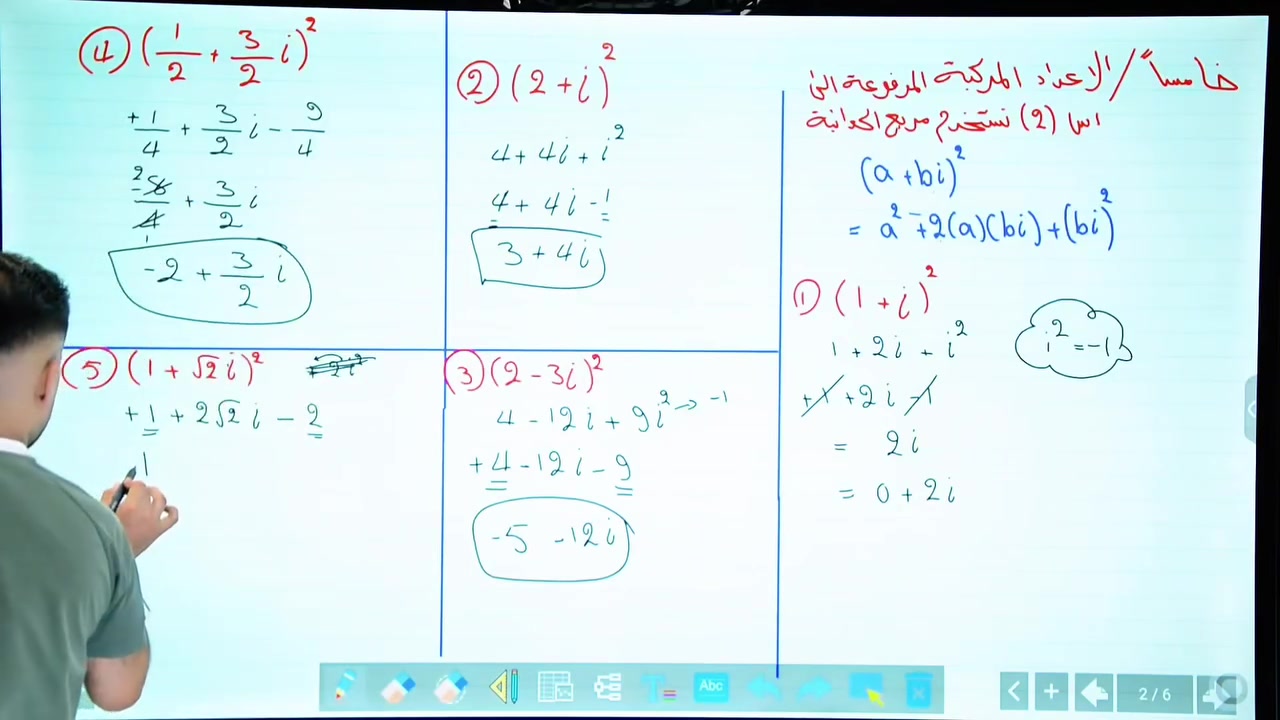 خامساً / الاعداد المركبة المرفوعة الى
اس (2) نستخدم مربع الحدانية
(a + bi)²
= a² ∓ 2(a)(bi) + (bi)²
① (1 + i)²
1 + 2i + i²
i² = -1
+1 + 2i - 1
= 2i
= 0 + 2i
② (2 + i)²
4 + 4i + i²
4 + 4i - 1
3 + 4i
③ (2 - 3i)²
4 - 12i + 9i² → -1
+4 - 12i - 9
-5 - 12i
④ (1/2 + 3/2 i)²
+1/4 + 3/2 i - 9/4
-8/4 + 3/2 i
2
1
-2 + 3/2 i
⑤ (1 + √2 i)²
+ 2i²
+1 + 2√2 i - 2
1
Abc
2 / 6